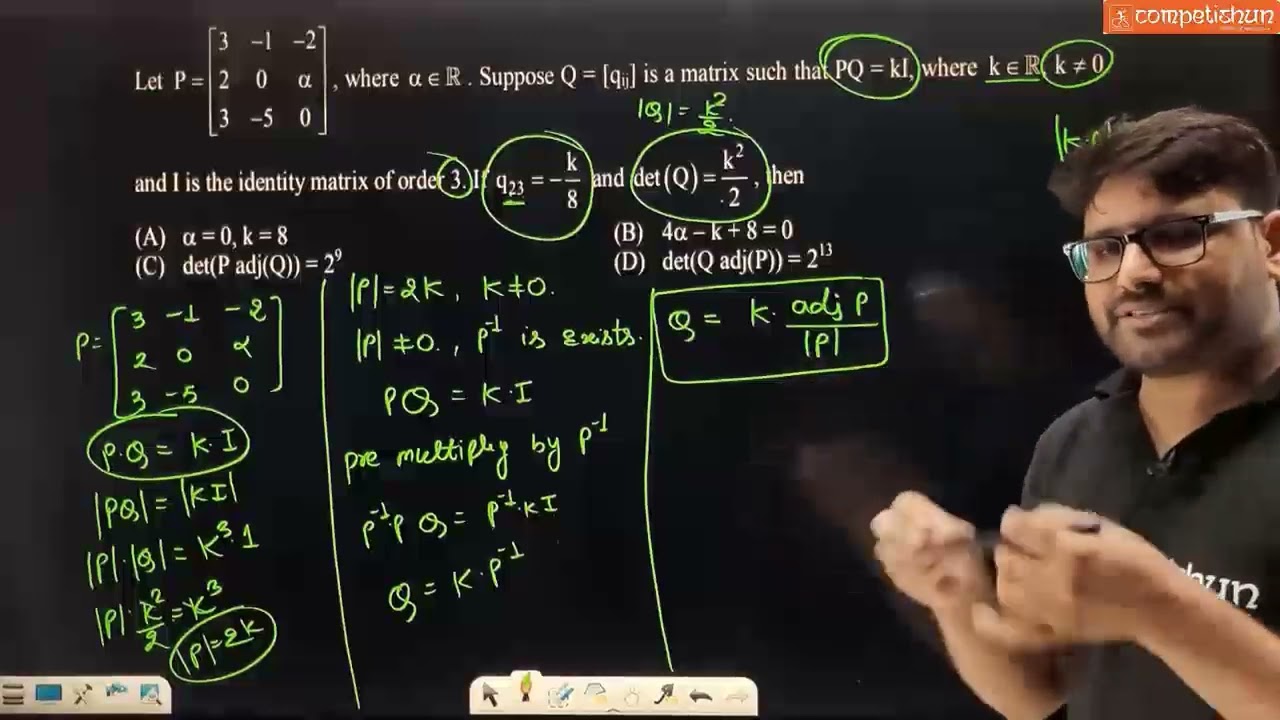 competishun
Let P = [3 -1 -2; 2 0 α; 3 -5 0], where α ∈ ℝ. Suppose Q = [qᵢⱼ] is a matrix such that PQ = kI, where k ∈ ℝ, k ≠ 0
|Q| = k²/2.
and I is the identity matrix of order 3. If q₂₃ = -k/8 and det(Q) = k²/2, then
(A) α = 0, k = 8
(B) 4α – k + 8 = 0
(C) det(P adj(Q)) = 2⁹
(D) det(Q adj(P)) = 2¹³
P = [3 -1 -2; 2 0 α; 3 -5 0]
P·Q = K·I
|PQ| = |KI|
|P|·|Q| = K³·1
|P|·K²/2 = K³
|P| = 2K
|P| = 2K, K≠0.
|P| ≠ 0., P⁻¹ is exists.
PQ = K·I
pre multiply by P⁻¹
P⁻¹P Q = P⁻¹·KI
Q = K·P⁻¹
Q = K· adj P/|P|